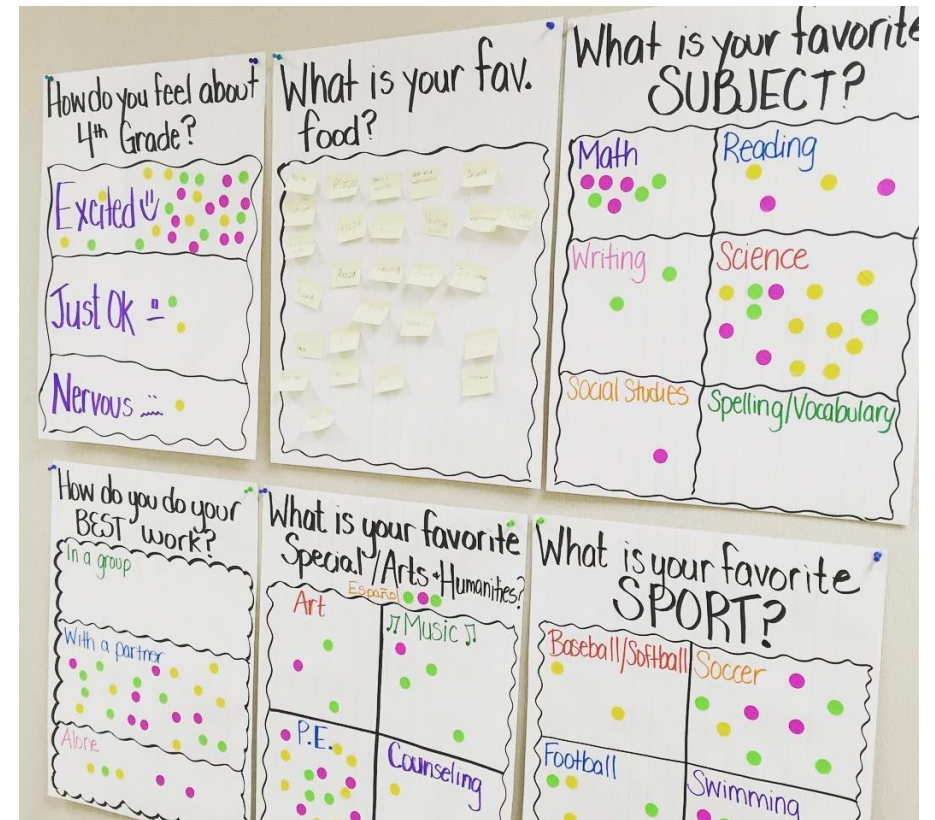 How do you feel about
4th Grade?
Excited
Just Ok
Nervous
What is your fav.
food?
Pizza
What is your favorite
SUBJECT?
Math
Reading
Writing
Science
Social Studies
Spelling/Vocabulary
How do you do your
BEST work?
In a group
With a partner
Alone
What is your favorite
Special/Arts + Humanities?
Español
Art
Music
P.E.
Counseling
What is your favorite
SPORT?
Baseball/Softball
Soccer
Football
Swimming